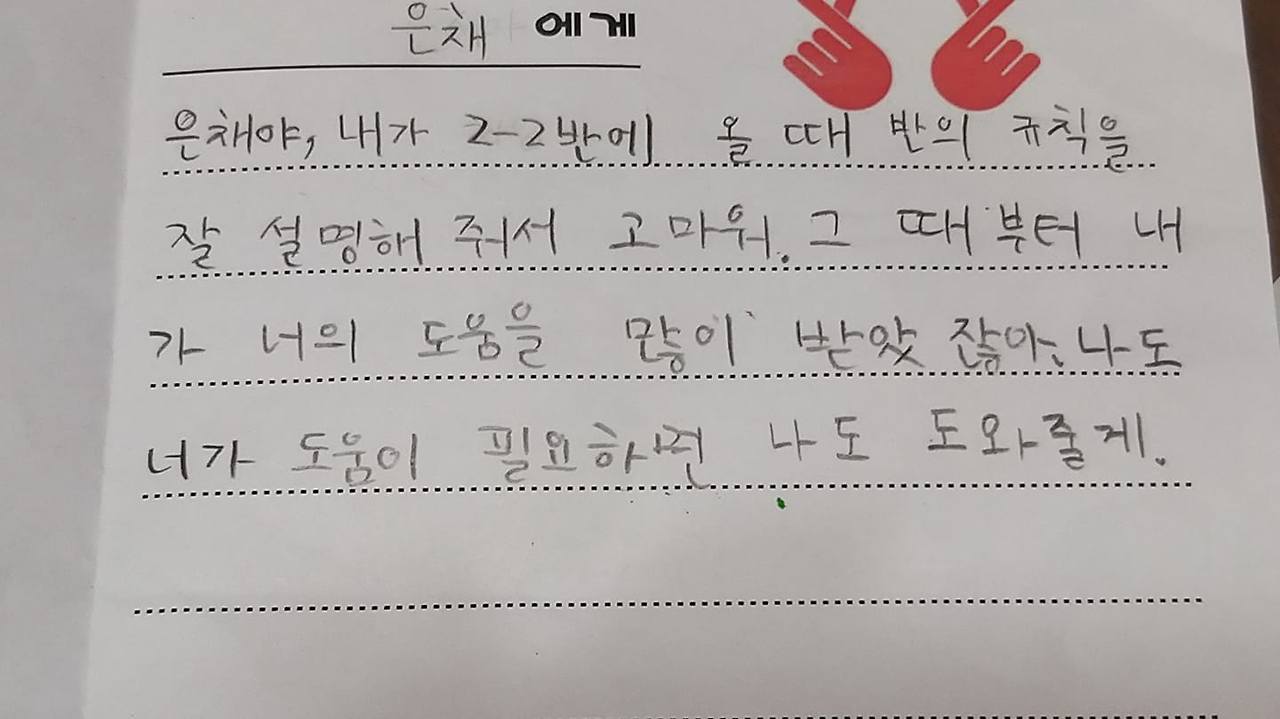 은채 에게
은채야, 내가 2-2반에 올 때 반의 규칙을
잘 설명해 줘서 고마워. 그 때부터 내
가 너의 도움을 많이 받았잖아. 나도
너가 도움이 필요하면 나도 도와줄게.